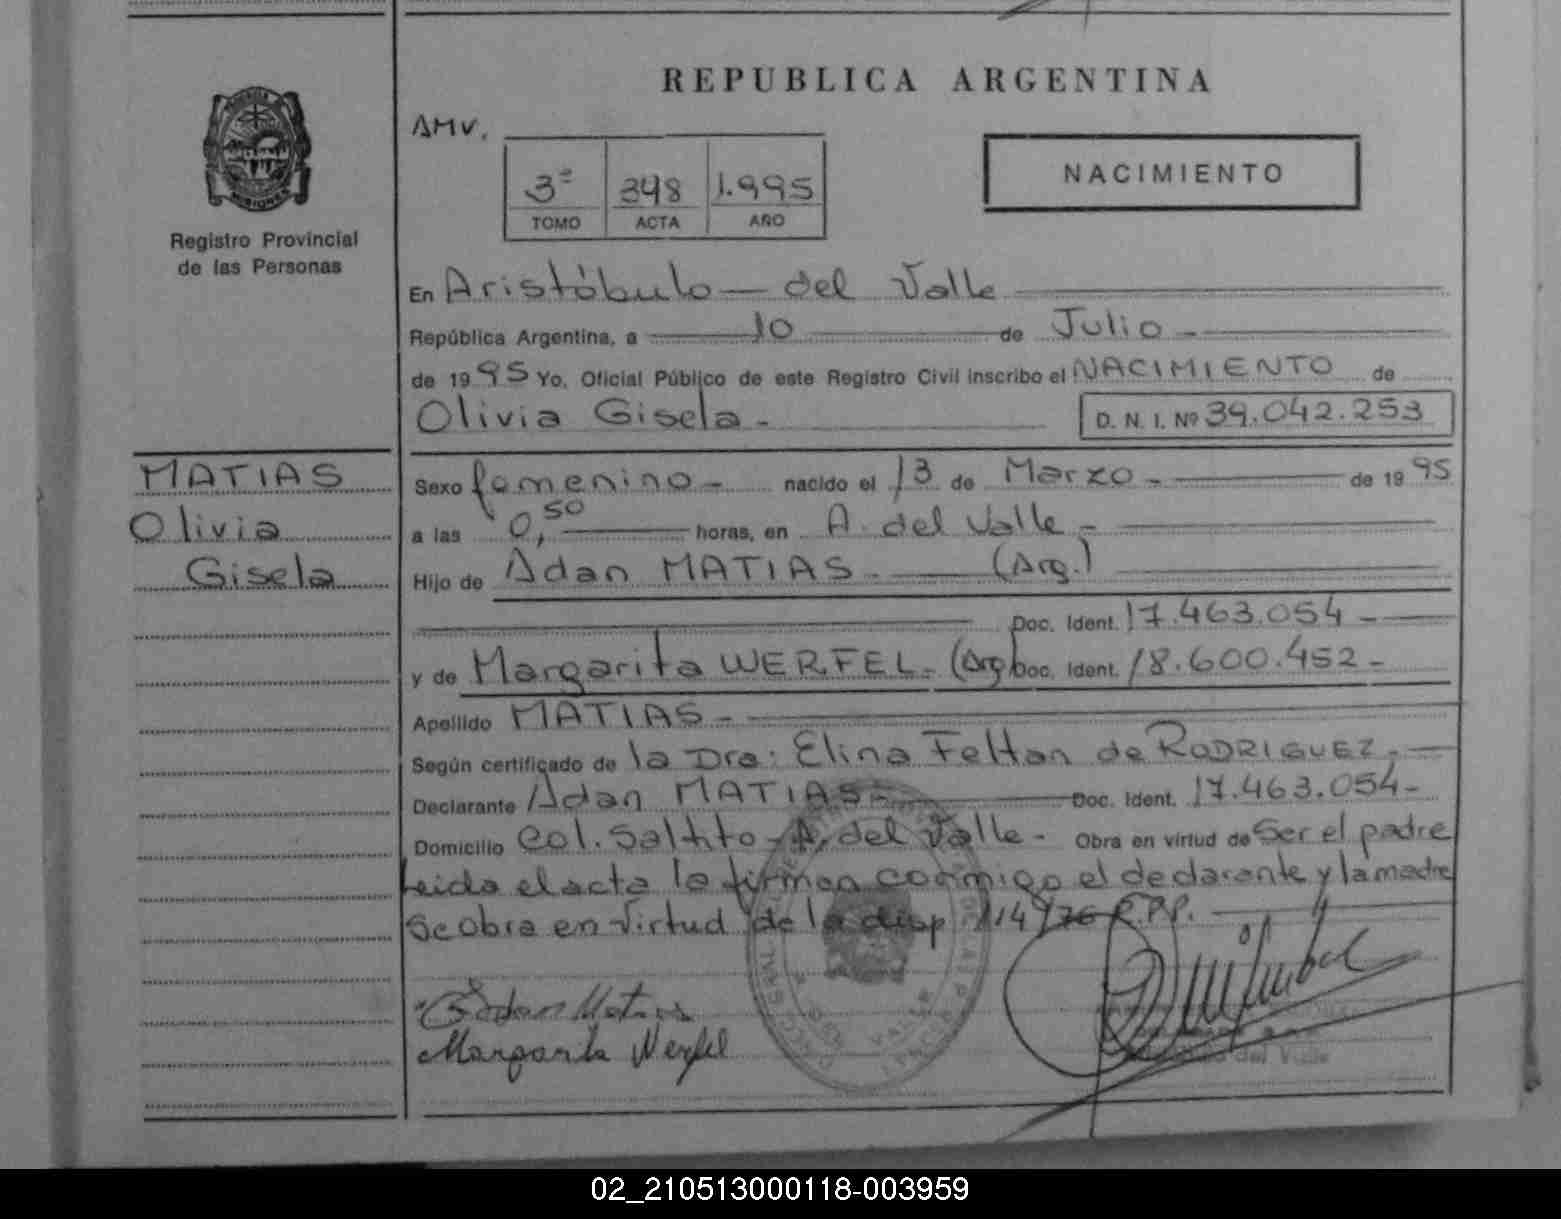 REPUBLICA ARGENTINA
AMV.
3º 398 1.995
TOMO ACTA AÑO
NACIMIENTO
MISIONES
Registro Provincial
de las Personas
En Aristóbulo — del Valle
República Argentina, a 10 de Julio -
de 1995 Yo, Oficial Público de este Registro Civil inscribo el NACIMIENTO de
Olivia Gisela - D. N. I. Nº 39.042.253
MATIAS
Olivia
Gisela
Sexo femenino - nacido el 13 de Marzo - de 1995
a las 0,50 horas, en A. del Valle -
Hijo de Adan MATIAS - (Arg.)
Doc. Ident. 17.463.054 -
y de Margarita WERFEL - (Arg) Doc. Ident. 18.600.452 -
Apellido MATIAS -
Según certificado de la Dra: Elina Feltan de RODRIGUEZ. -
Declarante Adan MATIAS - Doc. Ident. 17.463.054 -
Domicilio Col. Saltito - A. del Valle - Obra en virtud de Ser el padre
Leida el acta la firman conmigo el declarante y la madre
Se obra en virtud de la disp 114/76 R.P.P.
Adan Matias
Margarita Werfel
del Valle
02_210513000118-003959